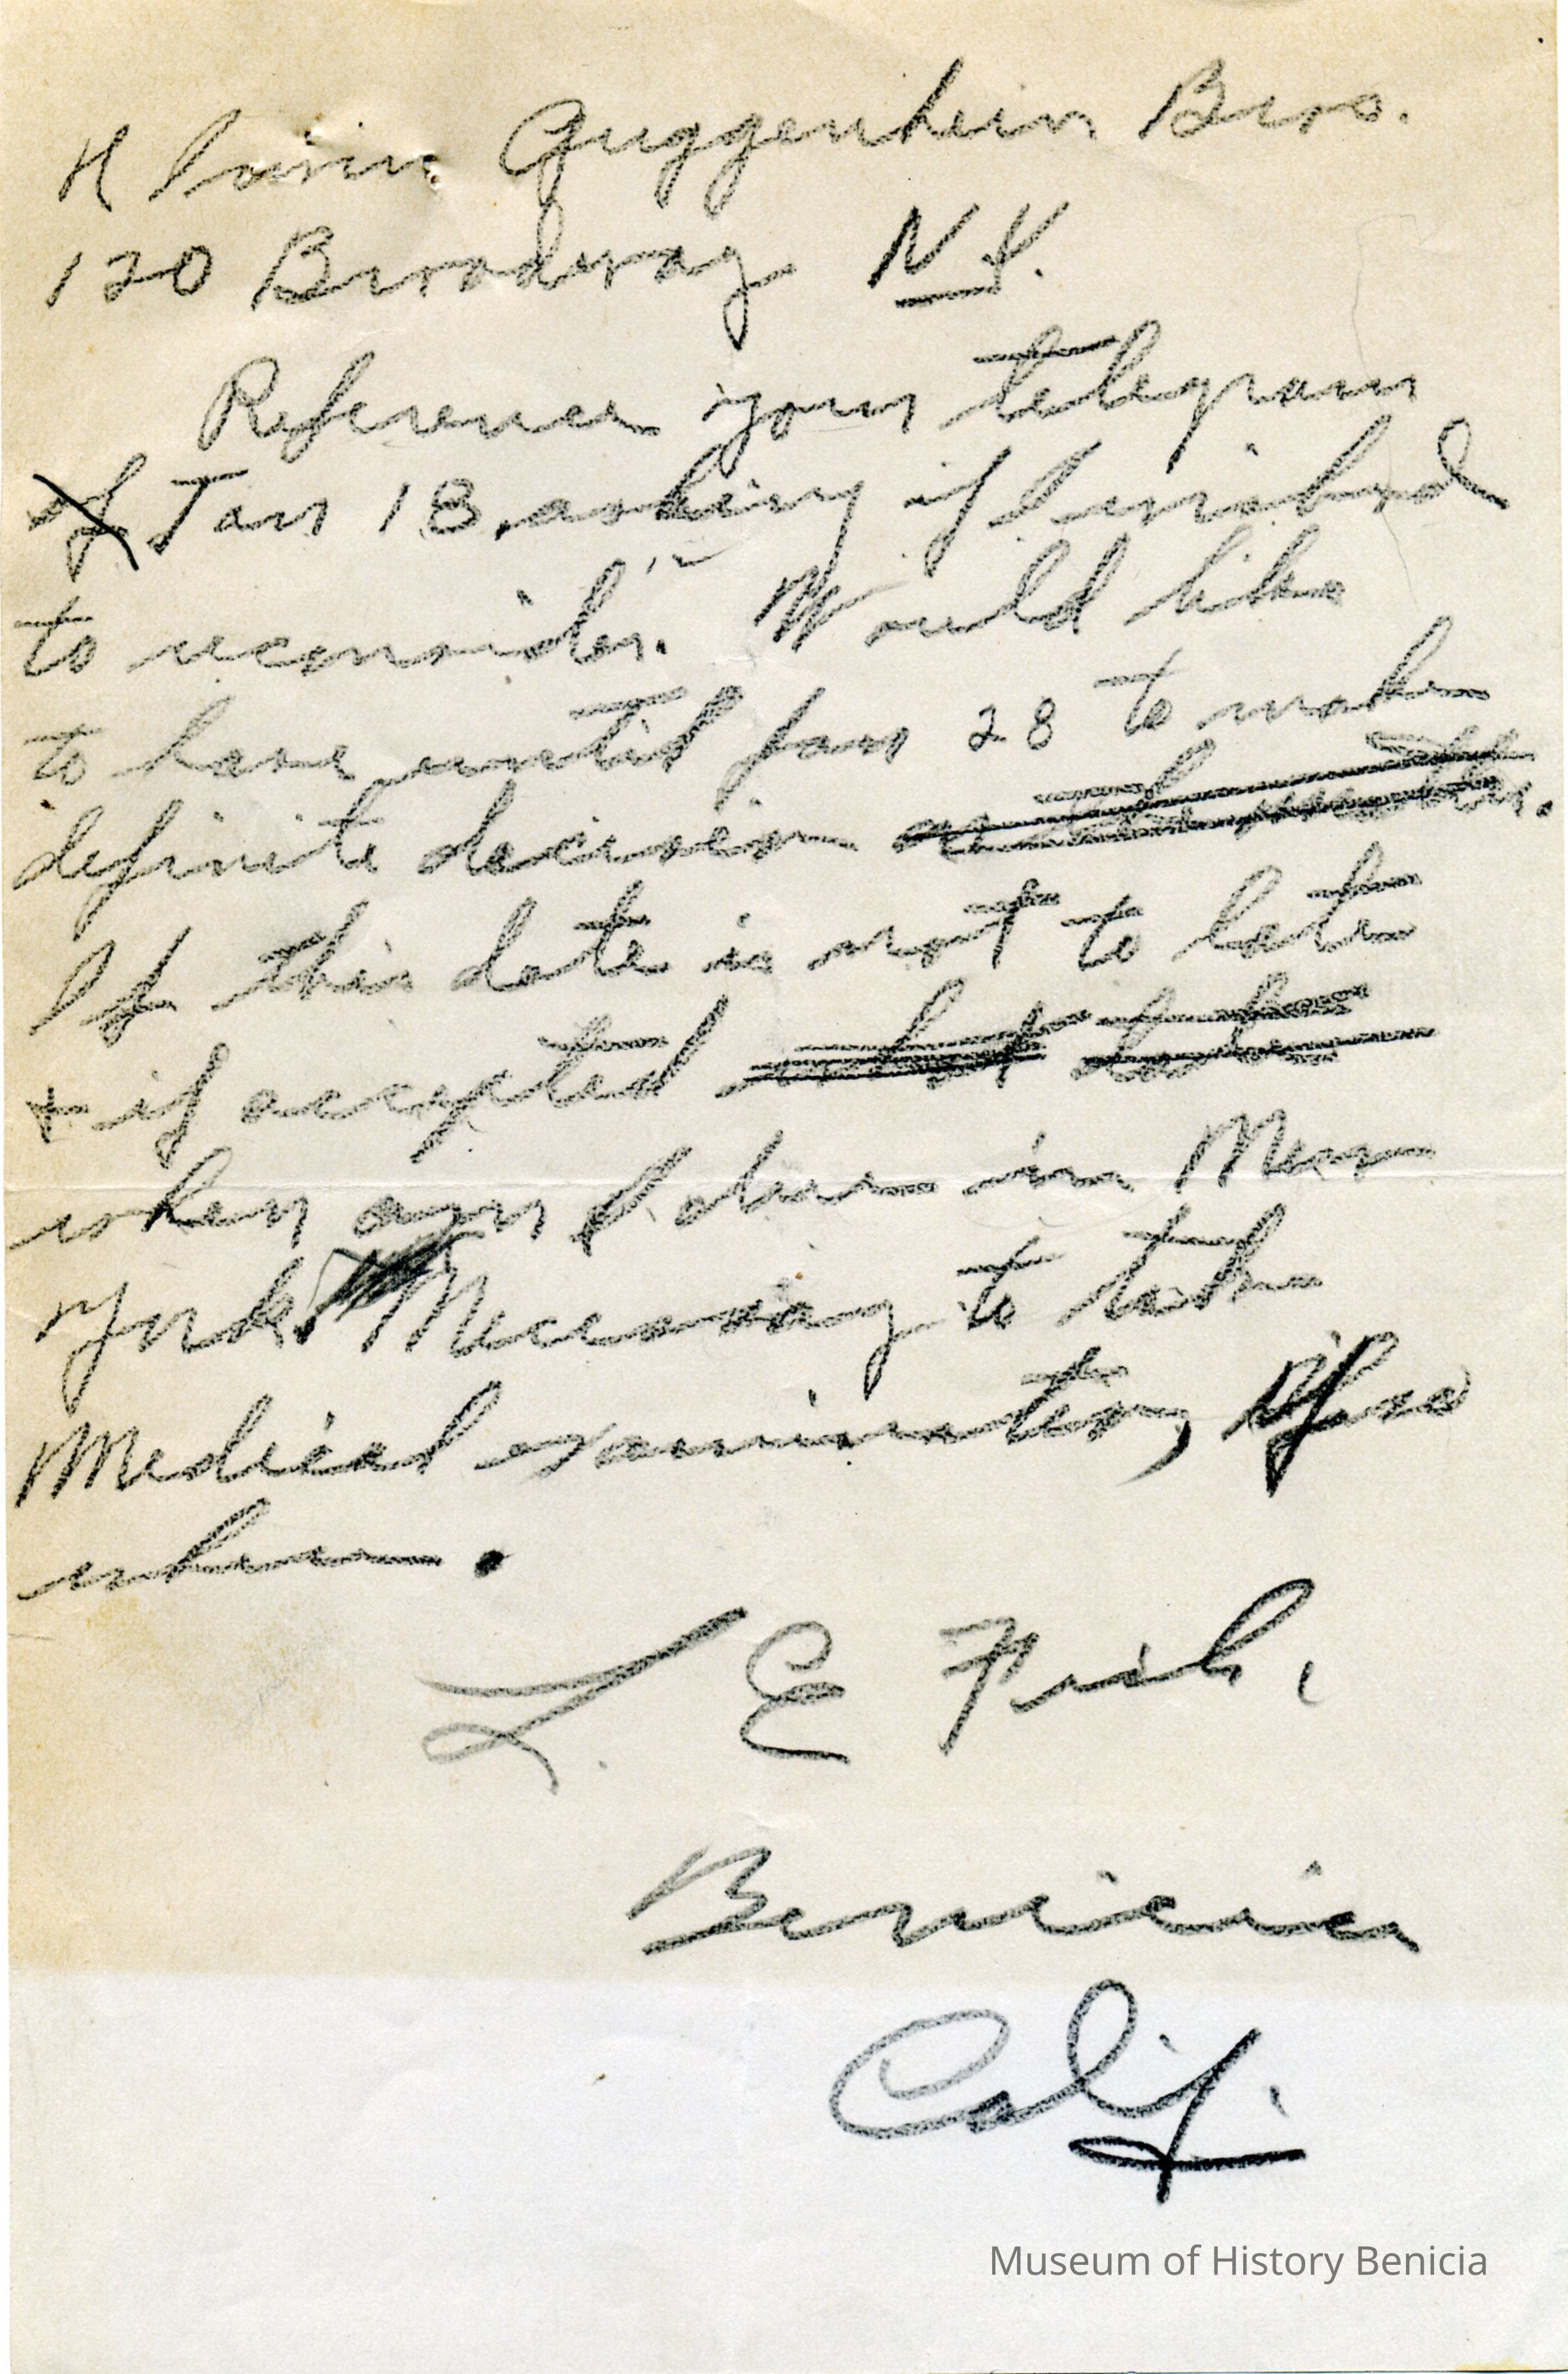 H Guggenheim Bros.
120 Broadway N.Y.
Reference your telegram
of Jan 18. asking if I wished
to reconsider. Would like
to have until Jan 28 to make
definite decision
If this date is not to late
+ if accepted
when am I due in New
York. Necessary to take
Medical examination, if so
where.
L. E. Fish,
Benicia
Calif.
Museum of History Benicia